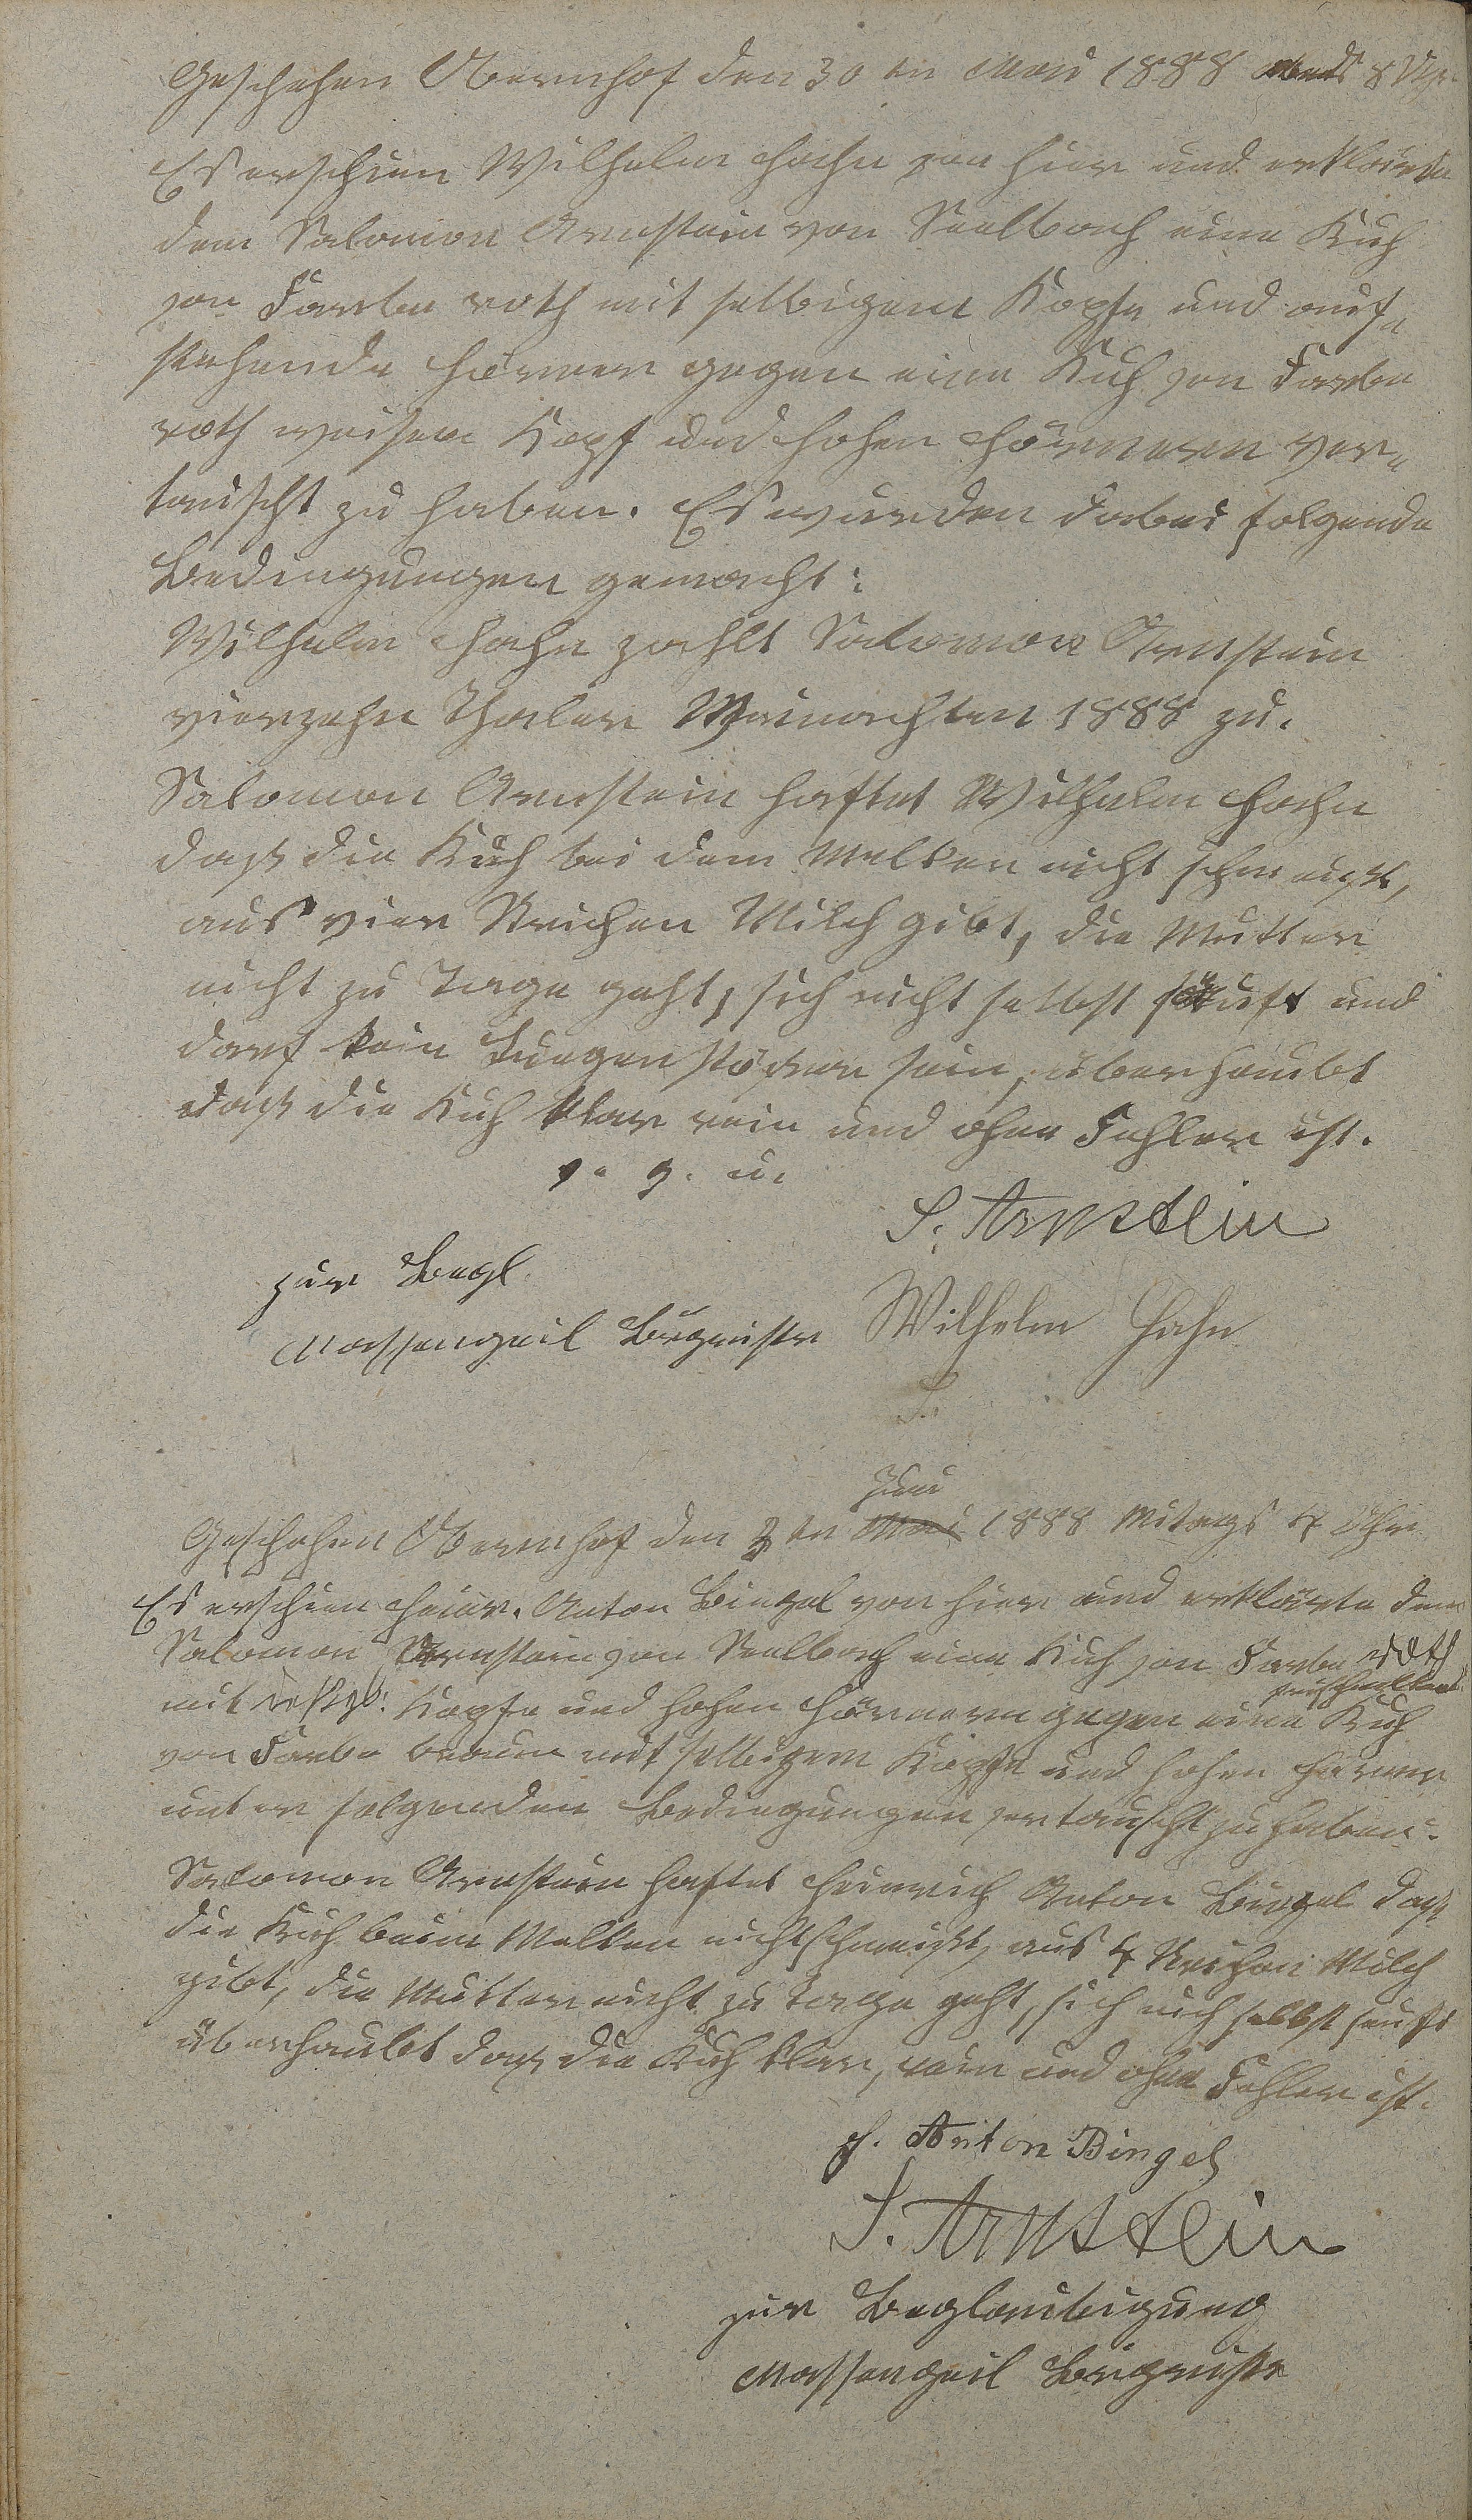 Geschehen Obernhof den 30 ten Mai 1888 abends 8 Uhr
Es erschien Wilhelm Hahn von hier und erklärte
dem Salomon Arnstein von Seelbach eine Kuh
von Farbe roth mit selbigem Kopfe und auf-
stehende Hörner gegen eine Kuh von Farbe
roth weisem Kopf und hohen Hörnern ver-
tauscht zu haben. Es wurden dabei folgende
Bedingungen gemacht:
Wilhelm Hahn zahlt Salomon Arnstein
vierzehn Thaler Weinachten 1888 zu.
Salomon Arnstein haftet Wilhelm Hahn
daß die Kuh bei dem Melken nicht schmeißt,
aus vier Strichen Milch gibt, die Mutter
nicht zu Tage geht, sich nicht selbst säuft und
darf kein Zungenstößer sein, überhaubt
daß die Kuh klar rein und ohne Fehler ist.
v. g. u.
S. Arnstein
zur Begl.
Massengeil Bürgmstr
Wilhelm Hahn
S.
Juni
Geschehen Obernhof den 2 ten Mai 1888 Mitags 4 Uhr
Es erschien Heinr. Anton Bingel von hier und erklärte dem
Salomon Arnstein von Seelbach eine Kuh von Farbe roth
mit Kopfe und hohen Hörnern gegen eine frischmelkend. Kuh
von Farbe braun mit selbigem Kopfe und hohen Hörner
unter folgenden Bedingungen vertauscht zu haben.
Salomon Arnstein haftet Heinrich Anton Bingel daß
die Kuh beim Melken nicht schmeißt, aus 4 Strichen Milch
gibt, die Mutter nicht zu Tage geht, sich nich selbst seuft
überhaubt daß die Kuh klar, rein und ohne Fehler ist.
H. Anton Bingel
S. Arnstein
zur Beglaubigung
Massengeil Bürgmstr